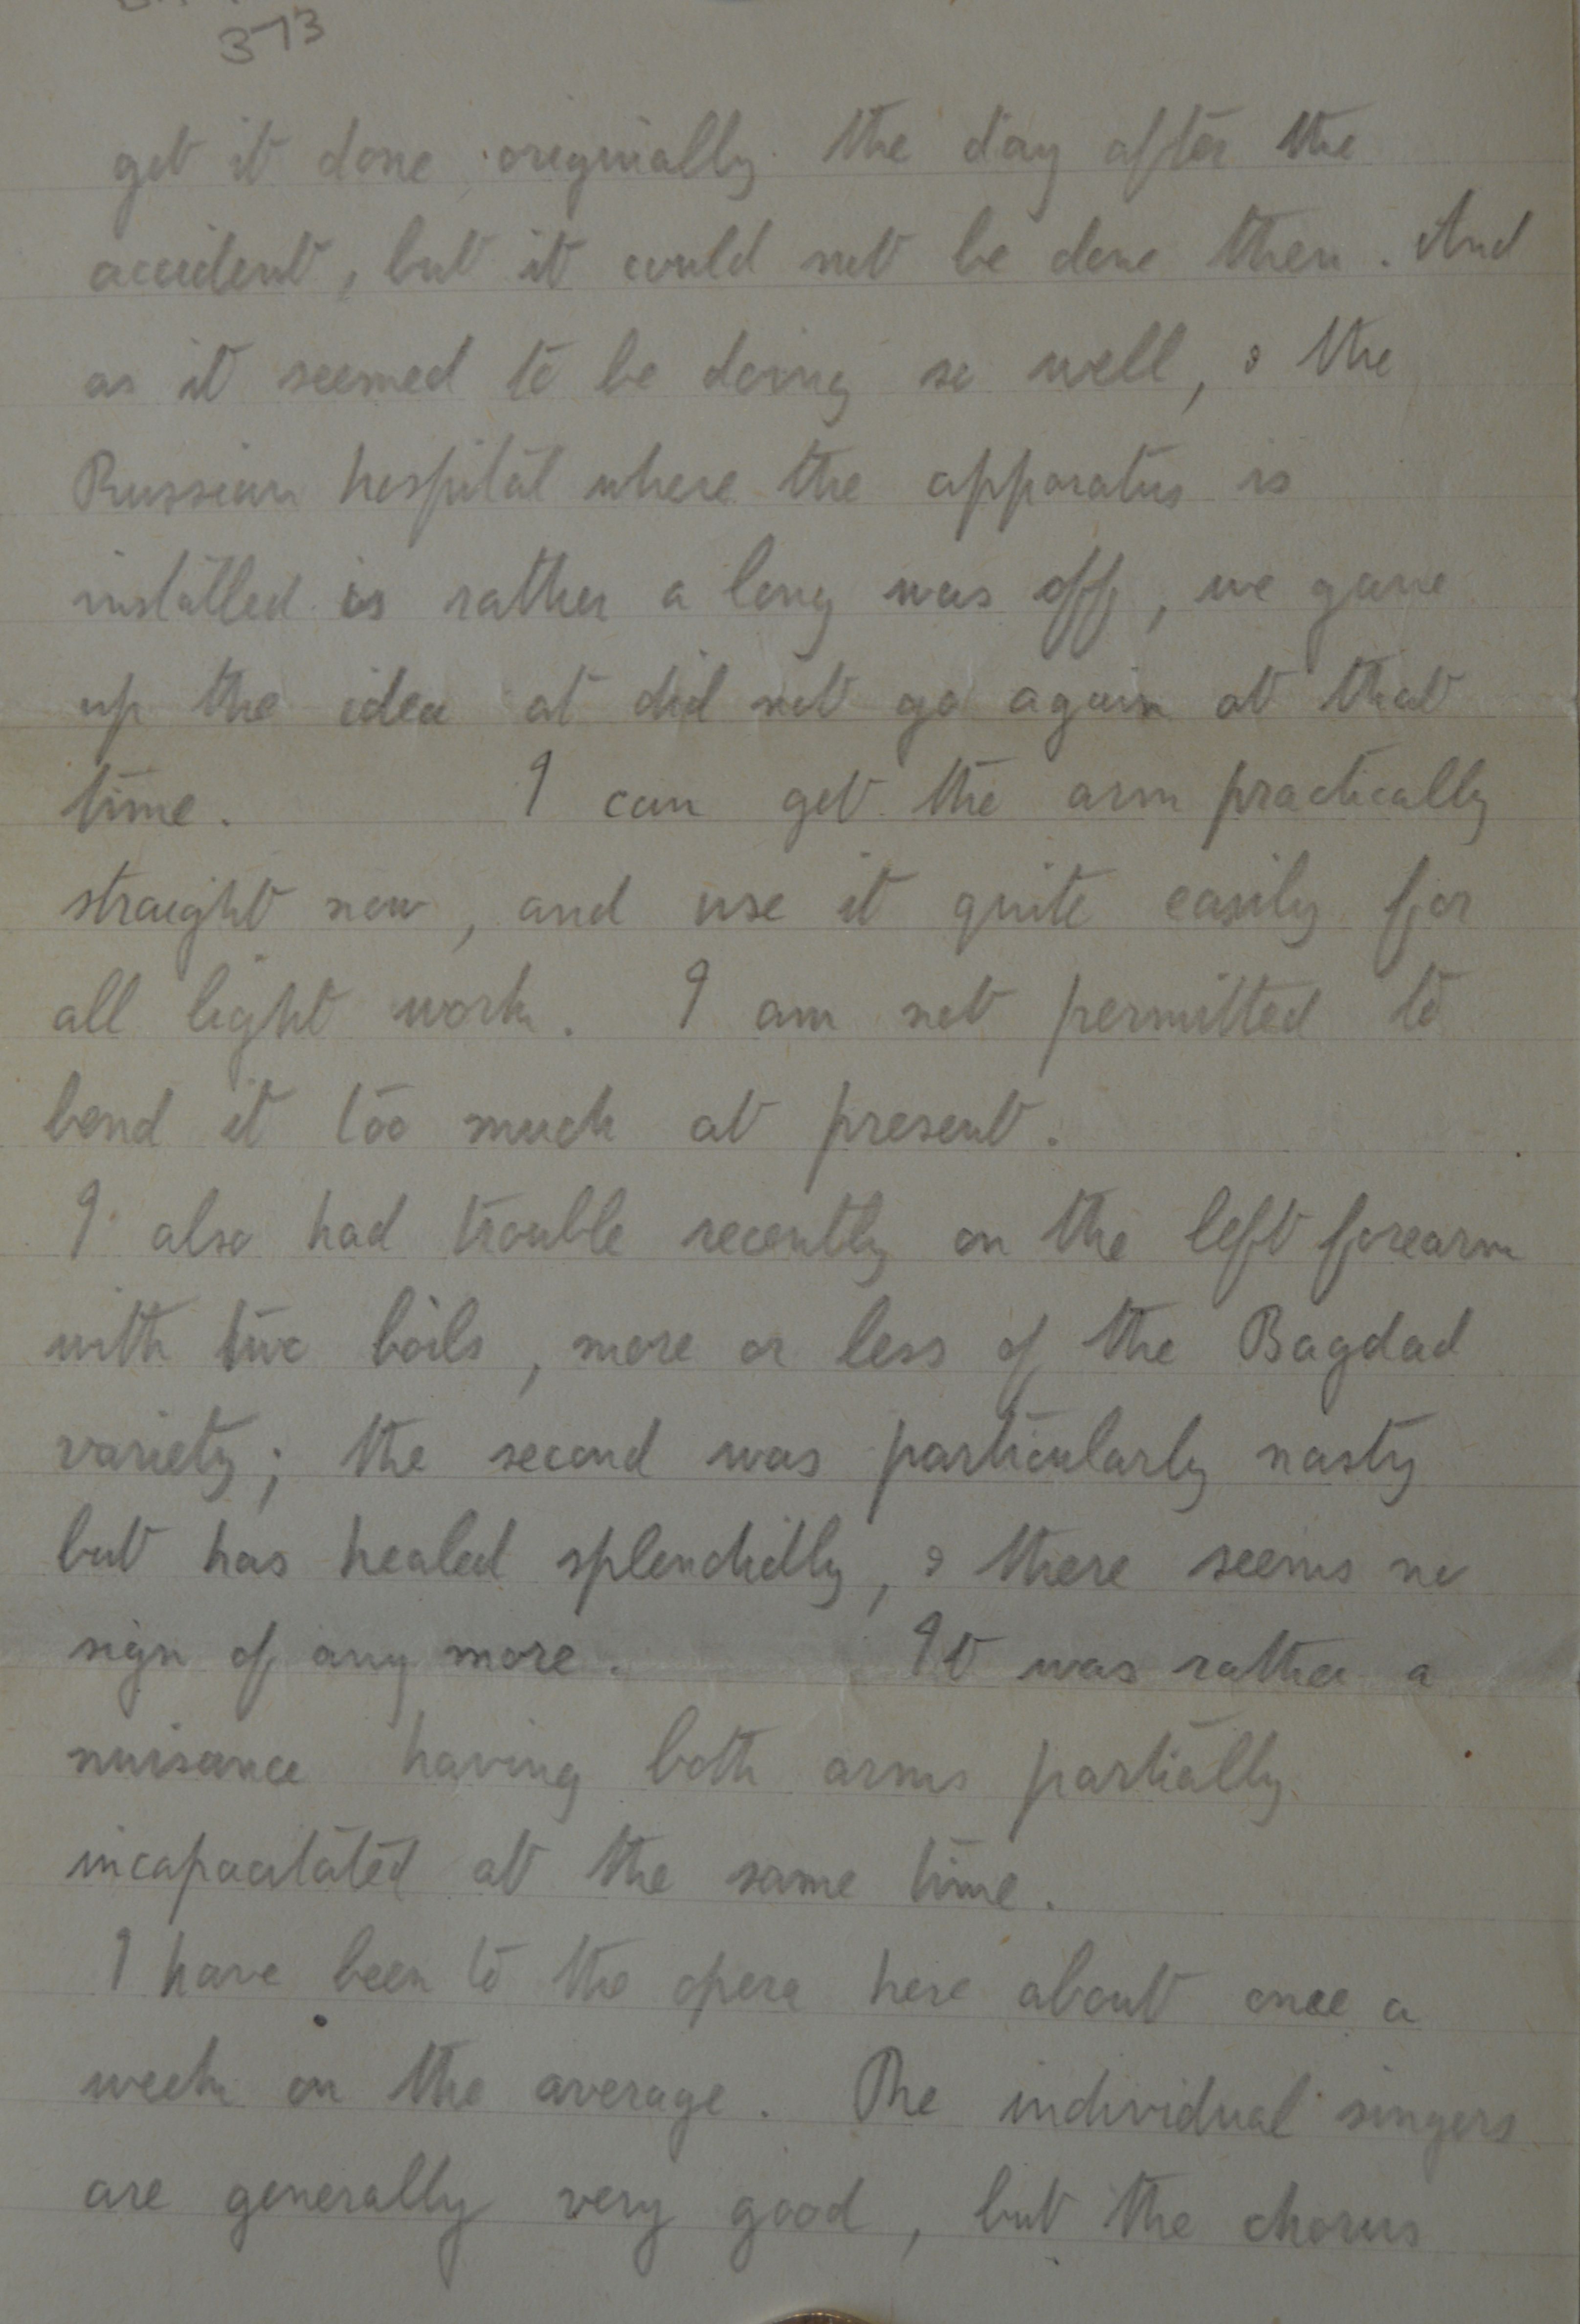 373
get it done originally the day after the
accident, but it could not be done then. And
as it seemed to be doing so well, & the
Russian hospital where the apparatus is
installed is rather a long was off, we gave
up the idea at did not go again at that
time. I can get the arm practically
straight now, and use it quite easily for
all light work. I am not permitted to
bend it too much at present.
I also had trouble recently on the left forearm
with two boils, more or less of the Bagdad
variety; the second was particularly nasty
but has healed splendidly, & there seems no
sign of any more. It was rather a
nuisance having both arms partially
incapacitated at the same time.
I have been to the opera here about once a
week on the average. The individual singers
are generally very good, but the chorus